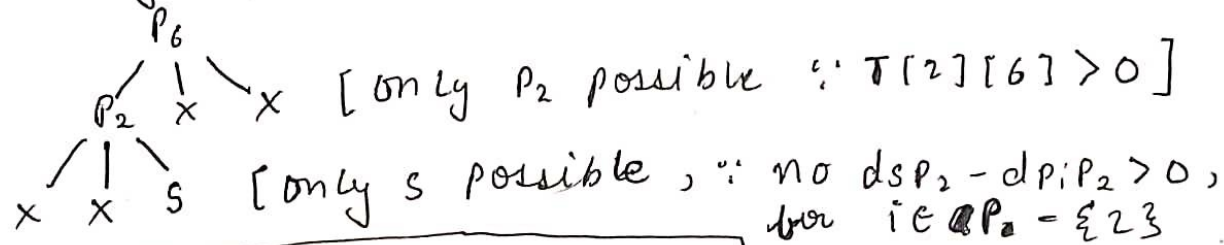 P6
P2 X X [only P2 possible ∵ T[2][6] > 0]
X X S [only s possible, ∵ no dsp2 - dpip2 > 0,
for i ∈ P - {2}